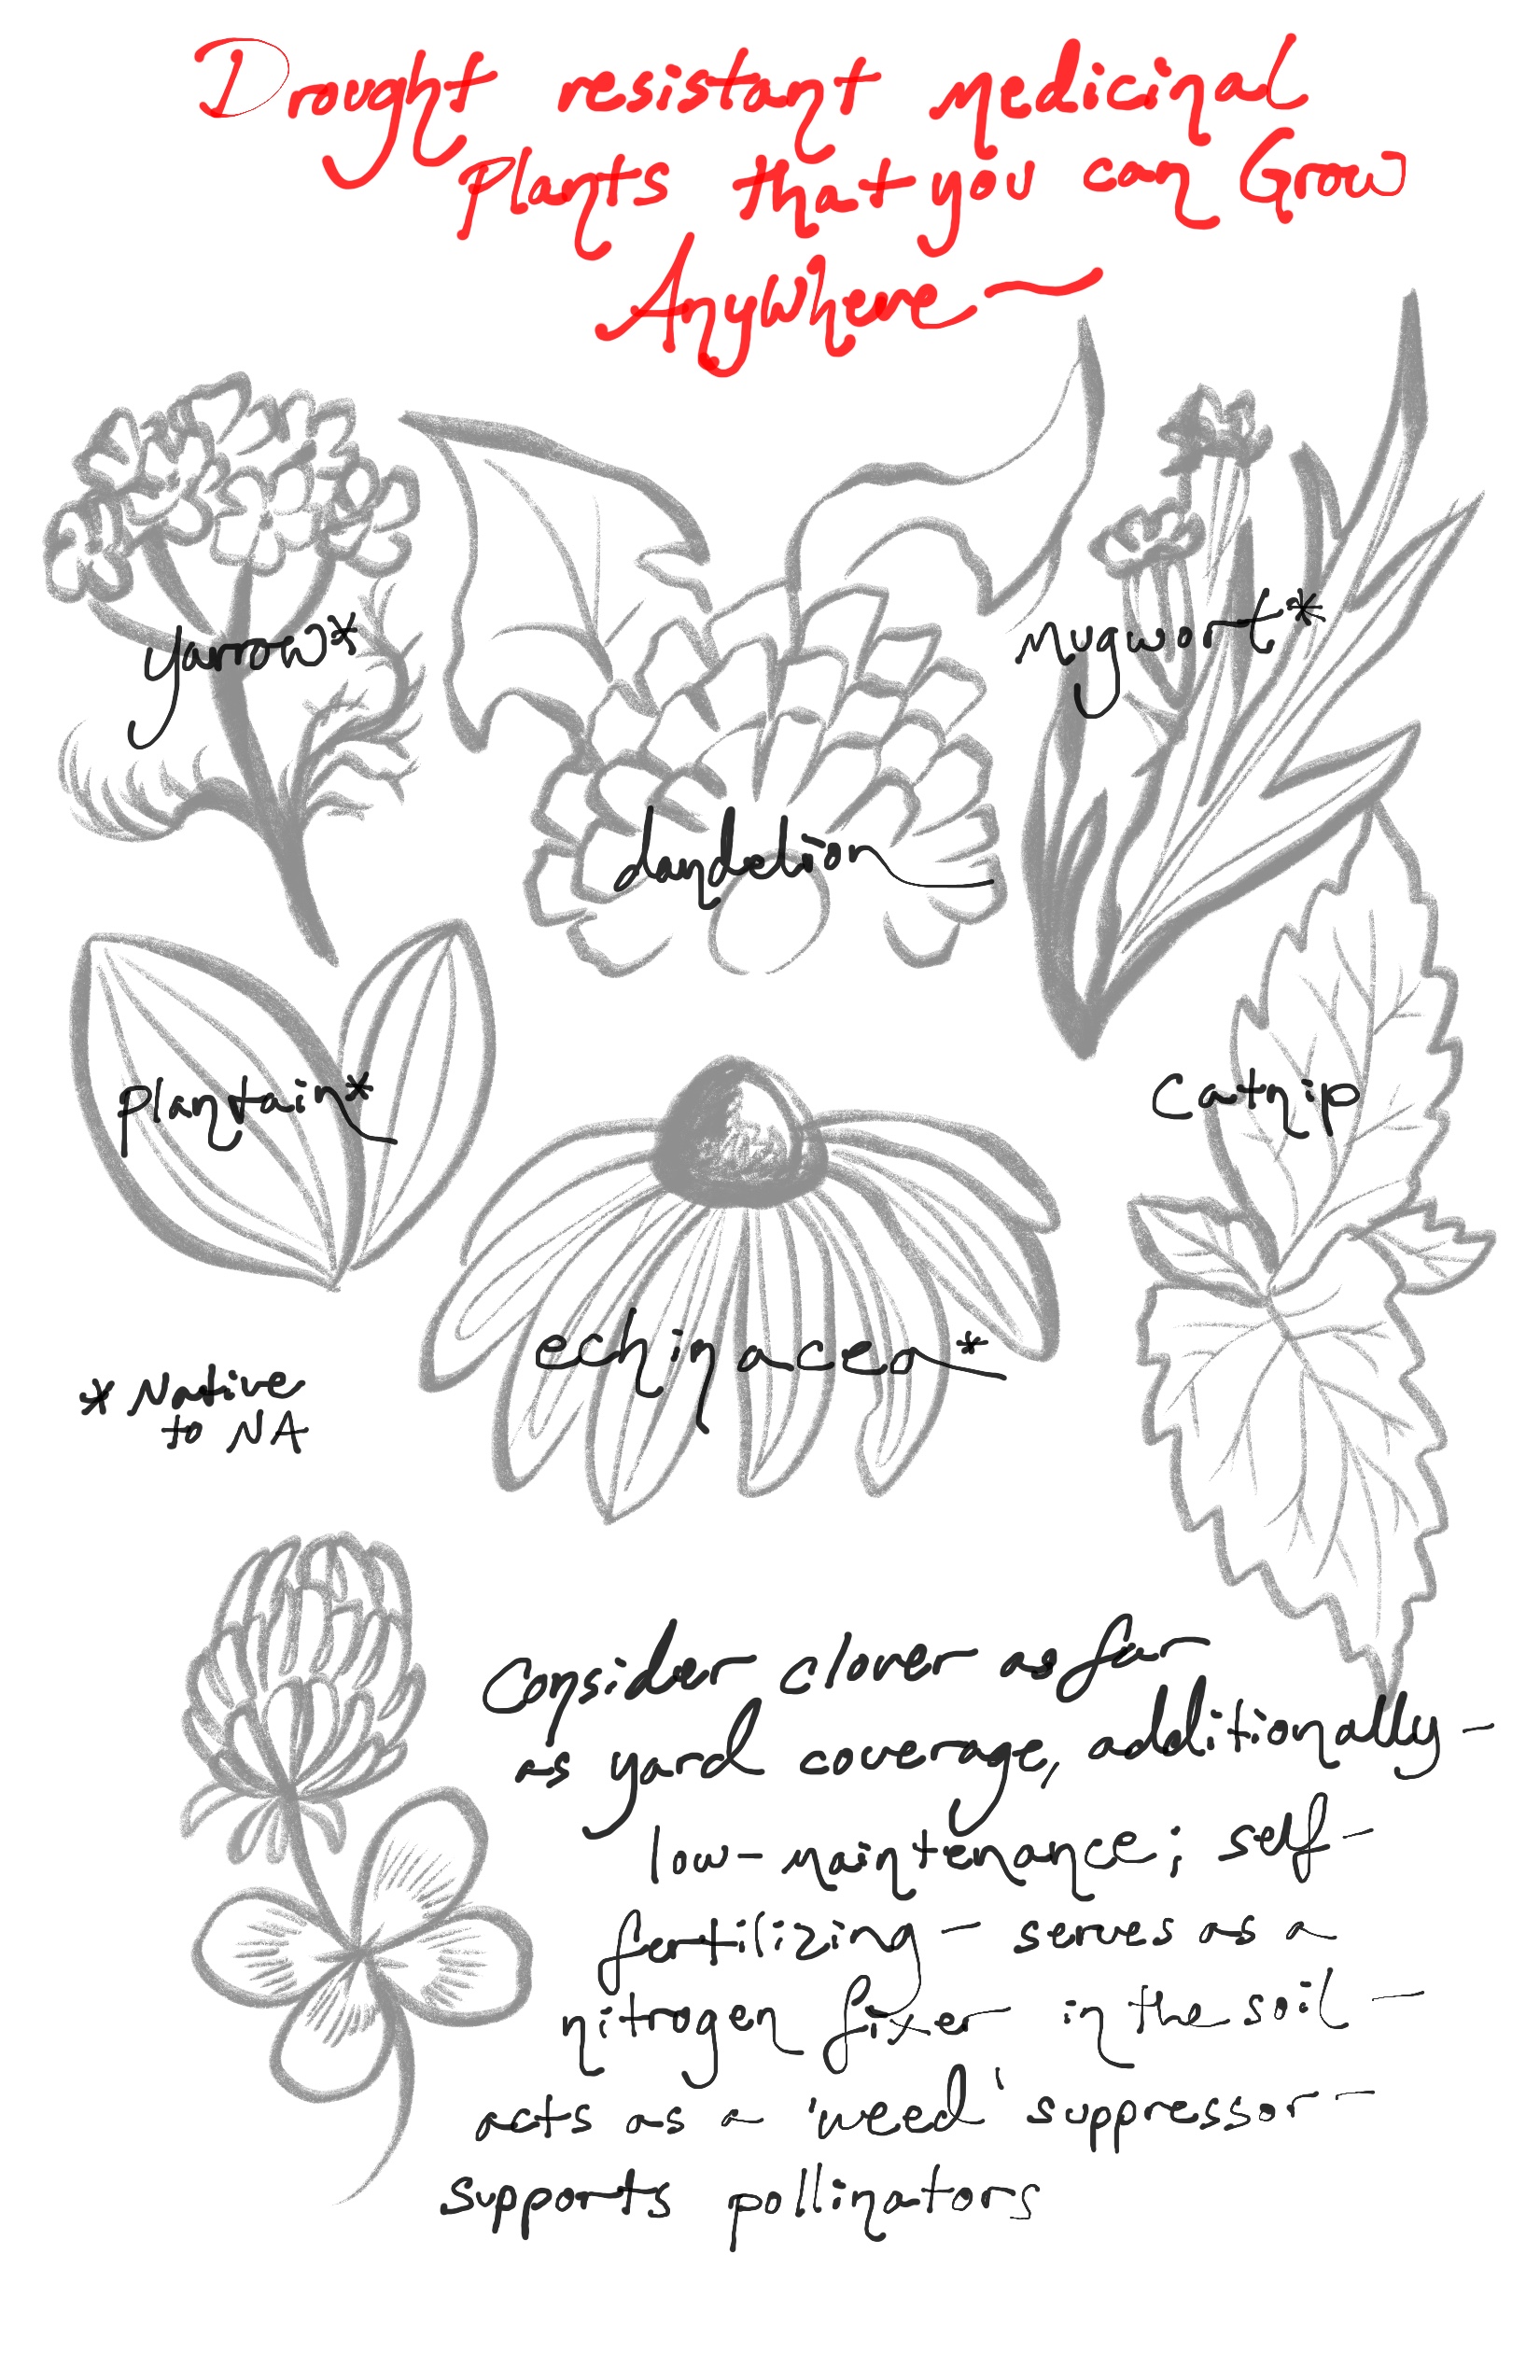 Drought resistant medicinal
Plants that you can Grow
Anywhere~
yarrow*
mugwort*
dandelion
plantain*
catnip
echinacea*
* Native
to NA
Consider clover as far
as yard coverage, additionally-
low-maintenance; self-
fertilizing - serves as a
nitrogen fixer in the soil -
acts as a 'weed' suppressor-
supports pollinators